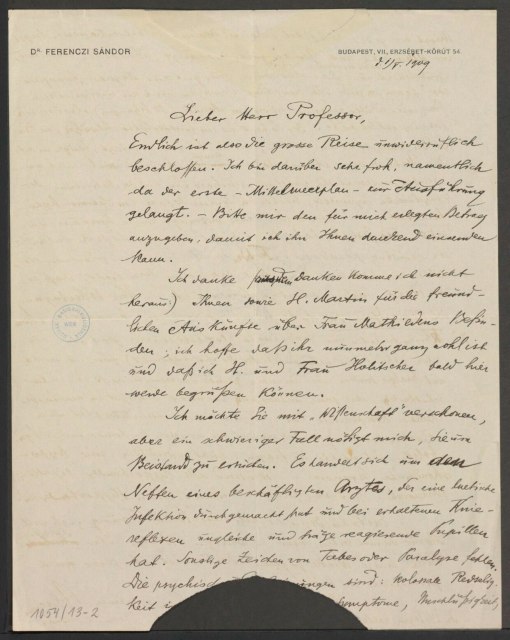 Dr. FERENCZI SÁNDOR
BUDAPEST, VII., ERZSÉBET-KÖRÚT 54.
d. 1/V. 1909
Lieber Herr Professor,
Endlich ist also die grosse Reise unwiderruflich
beschlossen. Ich bin darüber sehr froh, namentlich
da der erste – Mittelmeerplan – zur Ausführung
gelangt. – Bitte mir den für mich erlegten Betrag
anzugeben, damit ich ihn Ihnen dankend einsenden
kann.
Ich danke danken komme ich nicht
heraus) Ihnen sowie H. Martin für die freund-
lichen Auskünfte über Frau Mathildens Befin-
den, ich hoffe daß ihr nunmehr ganz wohl ist
und daß ich H. und Frau Hollitscher bald hier
werde begrüßen können.
Ich möchte Sie mit „Wissenschaft" verschonen,
aber ein schwieriger Fall nötigt mich, Sie um
Beistand zu ersuchen. Es handelt sich um den
Neffen eines beschäftigten Arztes, der eine luetische
Infektion durchgemacht hat und bei erhaltenen Knie-
reflexen ungleiche und träge reagierende Pupillen
hat. Sonstige Zeichen von Tabes oder Paralyse fehlen.
Die psychisch sind: kolossale Redselig-
keit Symptome,
1054/13-2